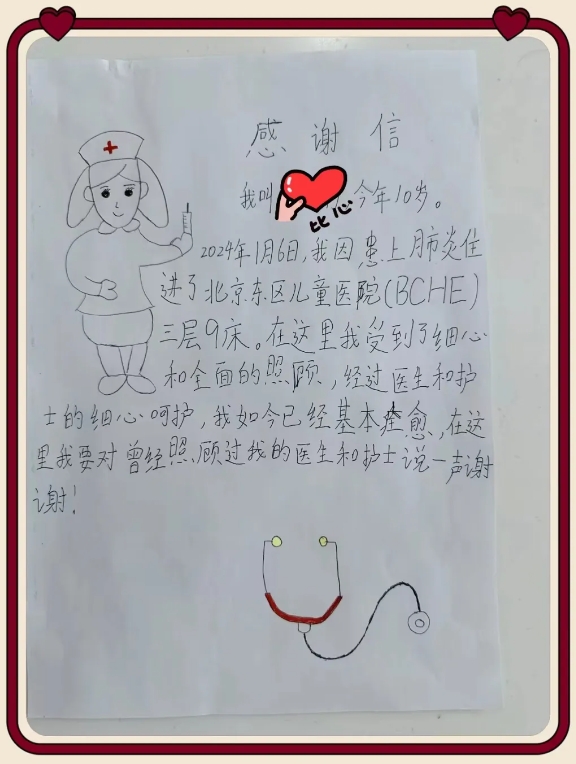 感谢信
我叫
比心
今年10岁。
2024年1月6日,我因患上肺炎住
进了北京东区儿童医院(BCHE)
三层9床。在这里我受到了细心
和全面的照顾,经过医生和护
士的细心呵护,我如今已经基本痊愈,在这
里我要对曾经照顾过我的医生和护士说一声谢
谢!